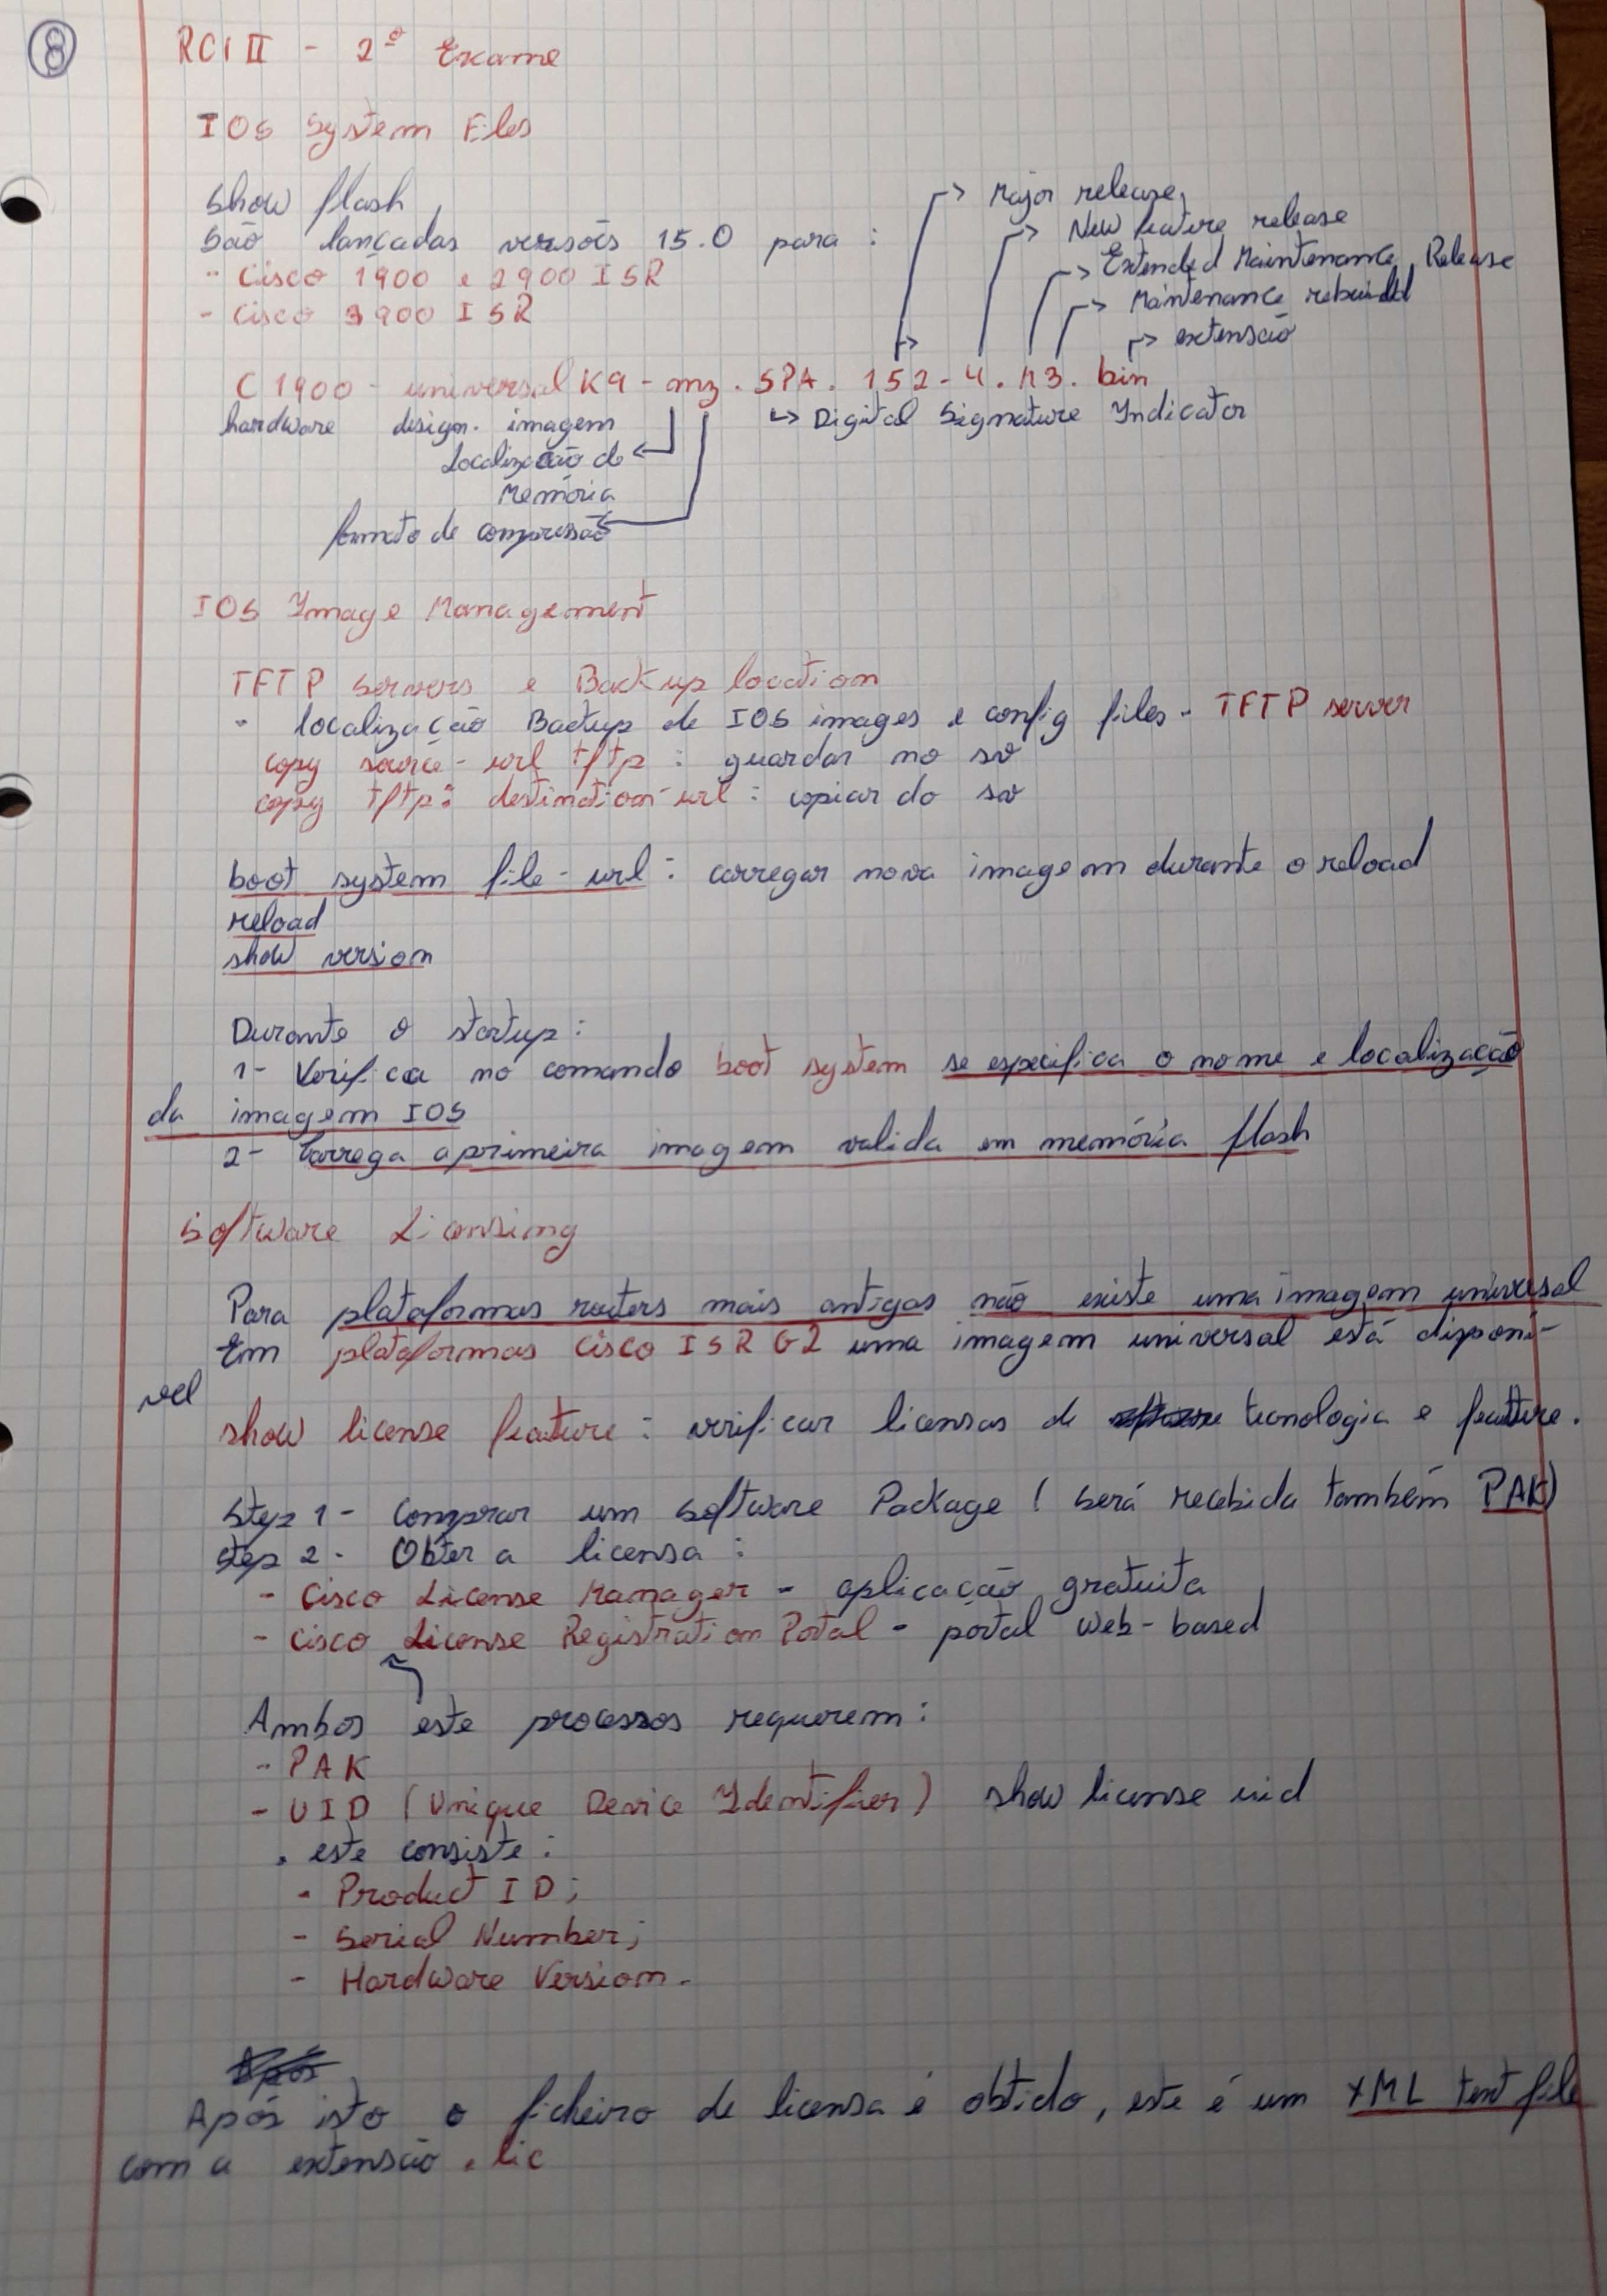 8
RCI II - 2º Exame
IOS System Files
Show flash
São lançadas versões 15.0 para :
- Cisco 1900 e 2900 ISR
- Cisco 3900 ISR
Major release
New feature release
Extended Maintenance Release
Maintenance rebuild
extensão
C1900 - universalK9 - mz . SPA . 152 - 4 . M3 . bin
hardware design. imagem
Digital Signature Indicator
Localização de
Memória
formato de compressão
IOS Image Management
TFTP Servers e Backup location
- localização Backup de IOS images e config files - TFTP server
copy source-url tftp : guardar no sv
copy tftp: destination-url : copiar do sv
boot system file-url : carregar nova imagem durante o reload
reload
show version
Durante o startup :
1- Verifica no comando boot system se especifica o nome e localização
da imagem IOS
2- Carrega a primeira imagem valida em memória flash
Software Licensing
Para plataformas routers mais antigas não existe uma imagem universal
Em plataformas Cisco ISR G2 uma imagem universal está disponí-
vel
show license feature : verificar licensas de tecnologia e feature.
Step 1 - Comprar um software Package ( Será recebida também PAK)
Step 2 - Obter a licensa :
- Cisco License Manager - aplicação gratuita
- Cisco License Registration Portal - portal Web-based
Ambos este processos requerem :
- PAK
- UID (Unique Device Identifier) show license uid
. este consiste :
- Product ID ;
- Serial Number ;
- Hardware Version .
Após isto o ficheiro de licensa é obtido, este é um XML text file
com a extensão .lic